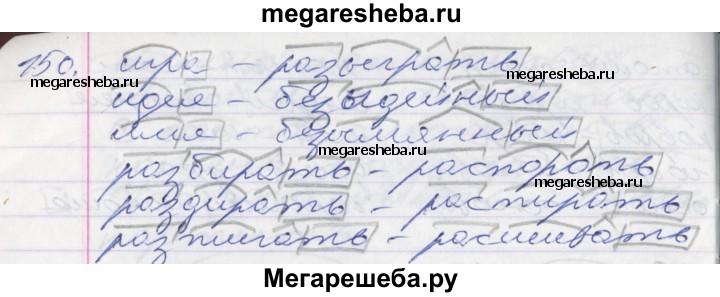 megaresheba.ru
150. игра – разыграть
megaresheba.ru megaresheba.ru
идея – безыдейный
имя – безымянный
megaresheba.ru
разбирать – распороть
megaresheba.ru megaresheba.ru
раздирать – растирать
разжигать – расшивать
Мегарешеба.ру